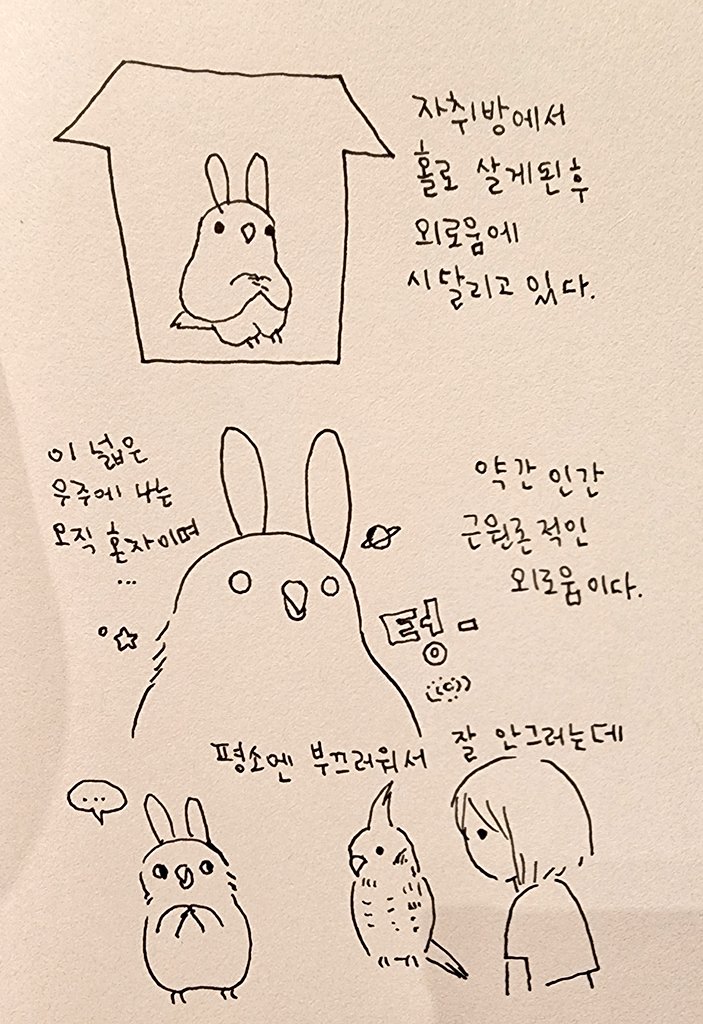 자취방에서
홀로 살게된 후
외로움에
시달리고 있다.
이 넓은
우주에 나는
오직 혼자이며
...
약간 인간
근원론적인
외로움이다.
텅-
평소엔 부끄러워서 잘 안그러는데
...